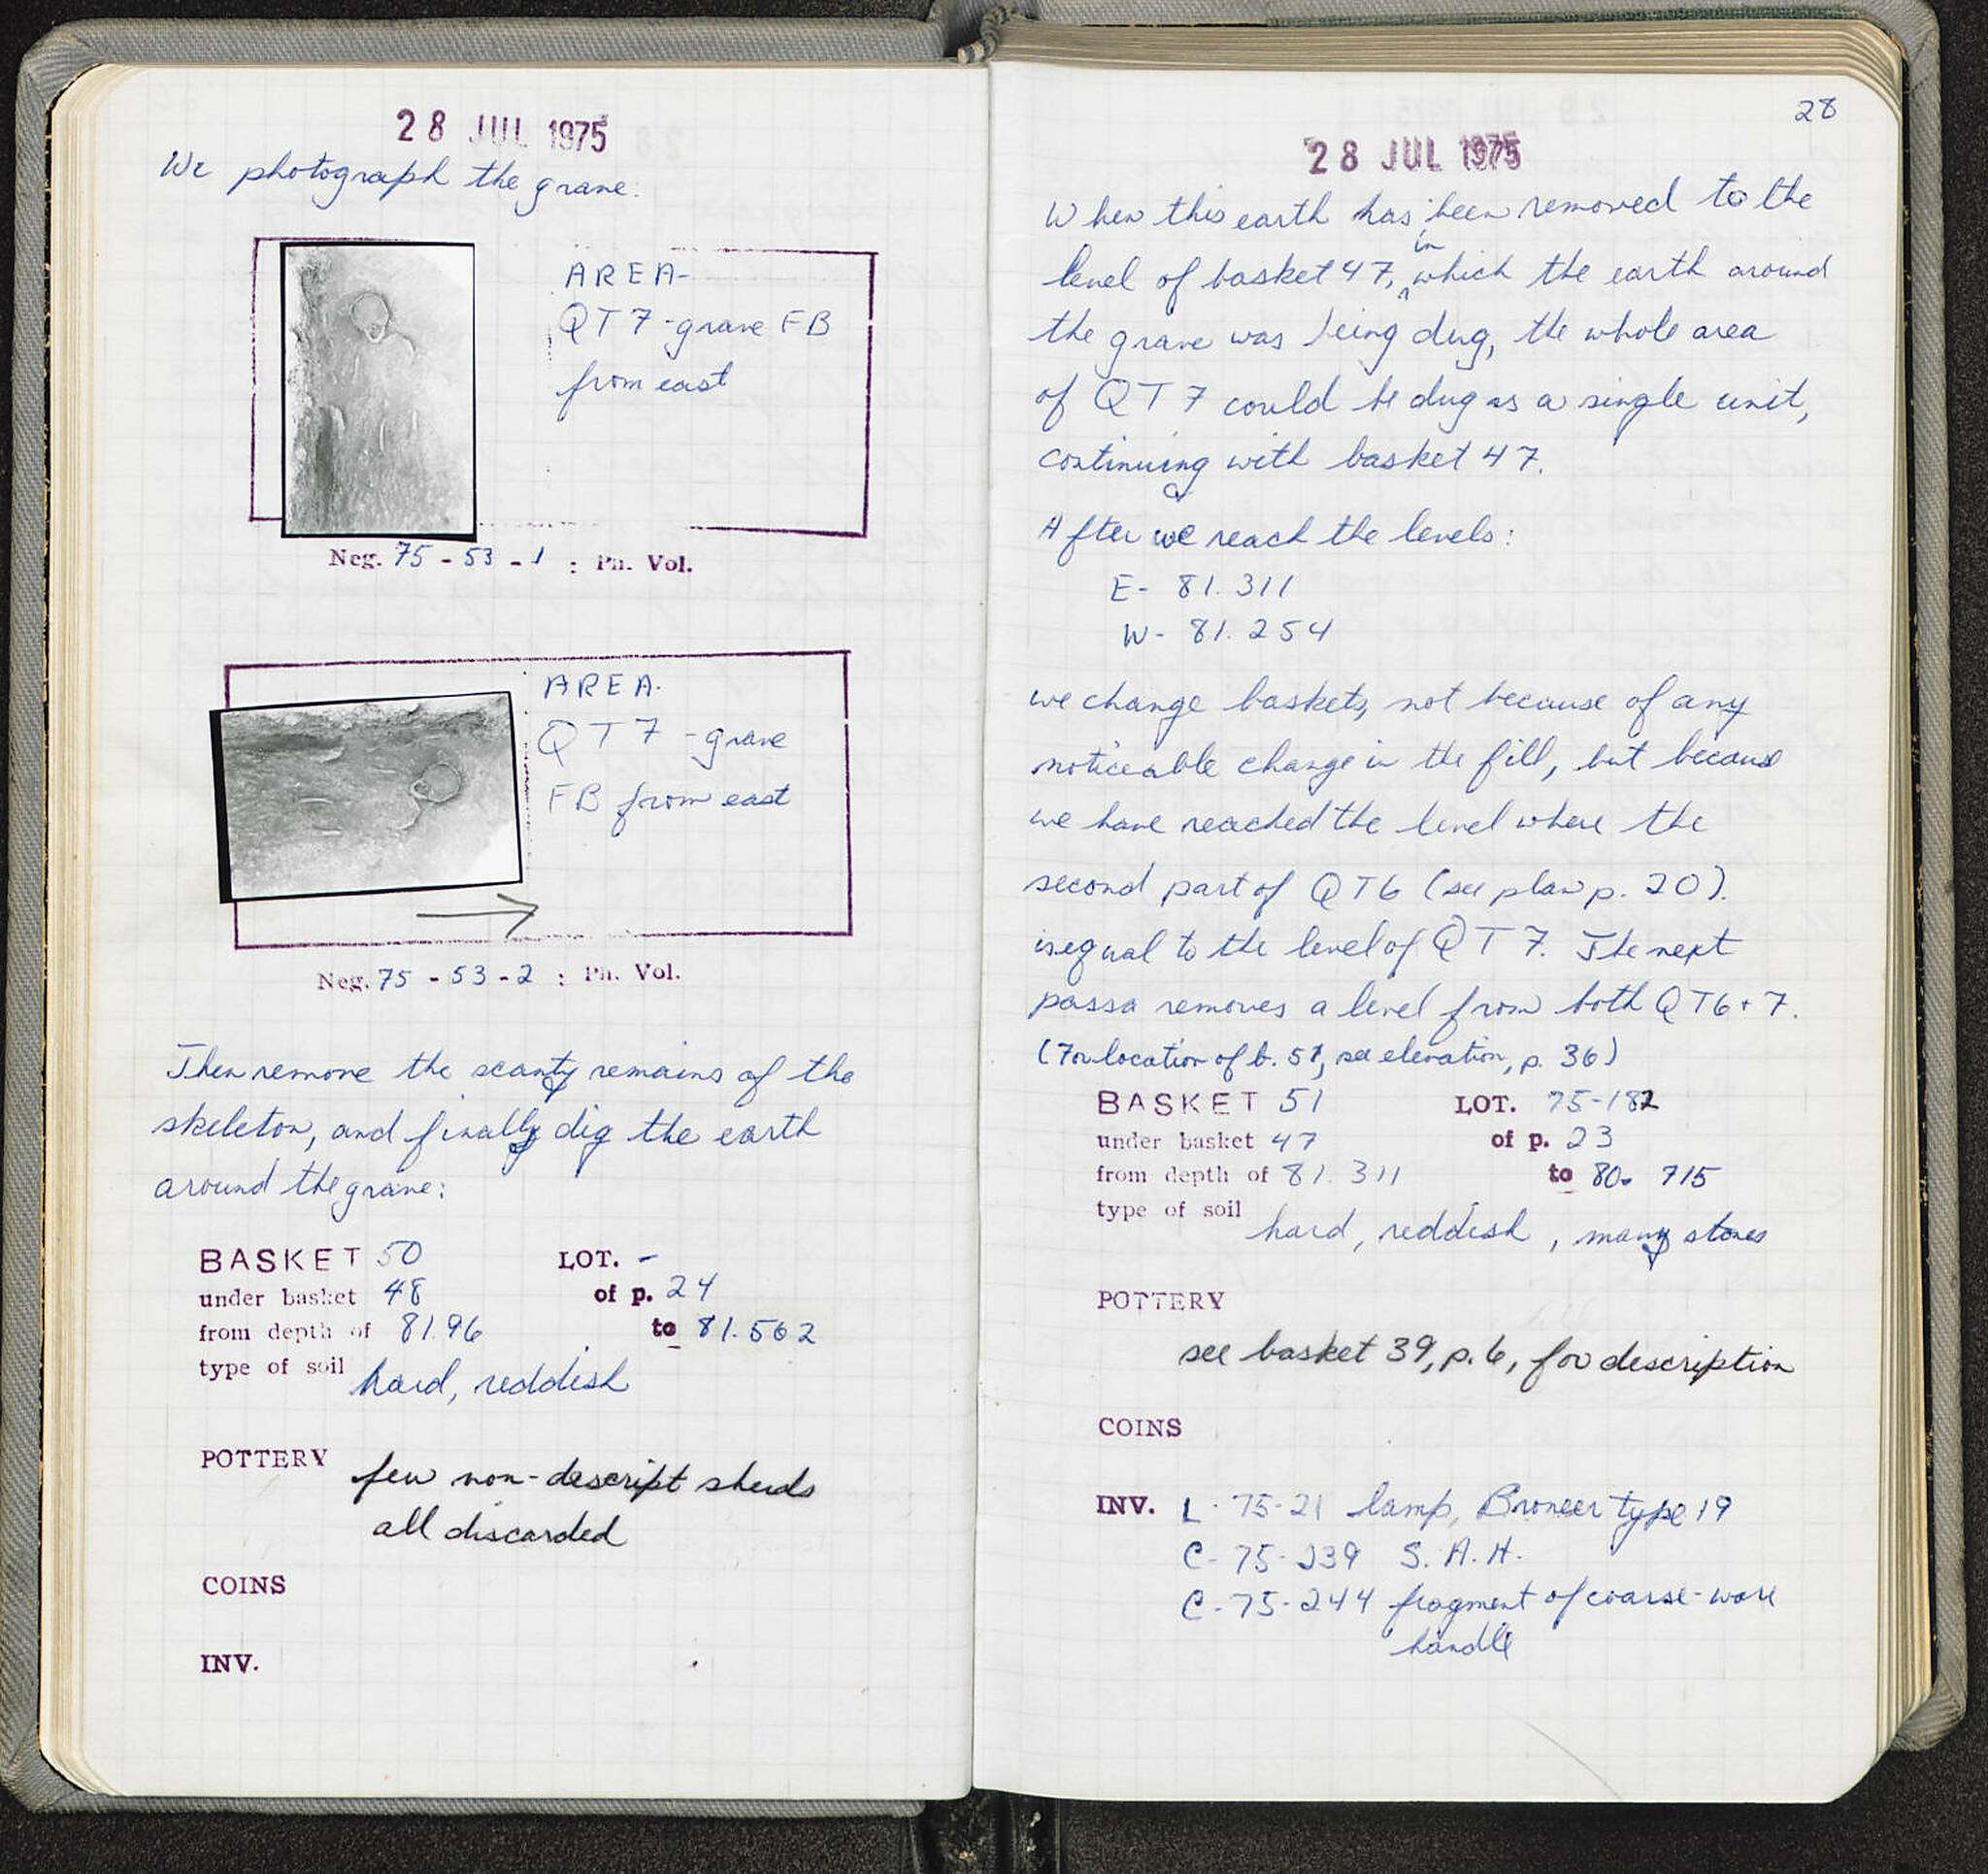 28 JUL 1975
We photograph the grave.
AREA-
QT7-grave FB
from east
Neg. 75-53-1 : Ph. Vol.
AREA.
QT7-grave
FB from east
Neg. 75-53-2 : Ph. Vol.
Then remove the scanty remains of the
skeleton, and finally dig the earth
around the grave:
BASKET 50 LOT. -
under basket 48 of p. 24
from depth of 81.96 to 81.562
type of soil hard, reddish
POTTERY few non-descript sherds
all discarded
COINS
INV.
28
28 JUL 1975
When this earth has been removed to the
level of basket 47, in which the earth around
the grave was being dug, the whole area
of QT7 could be dug as a single unit,
continuing with basket 47.
After we reach the levels:
E- 81.311
W- 81.254
we change baskets, not because of any
noticeable change in the fill, but because
we have reached the level where the
second part of QT6 (see plan p. 20).
is equal to the level of QT7. The next
passa removes a level from both QT6+7.
(For location of b. 51, see elevation, p. 36)
BASKET 51 LOT. 75-182
under basket 47 of p. 23
from depth of 81.311 to 80.715
type of soil hard, reddish, many stones
POTTERY
see basket 39, p. 6, for description
COINS
INV. L-75-21 lamp, Broneer type 19
C-75-239 S.A.H.
C-75-244 fragment of coarse-ware
handle